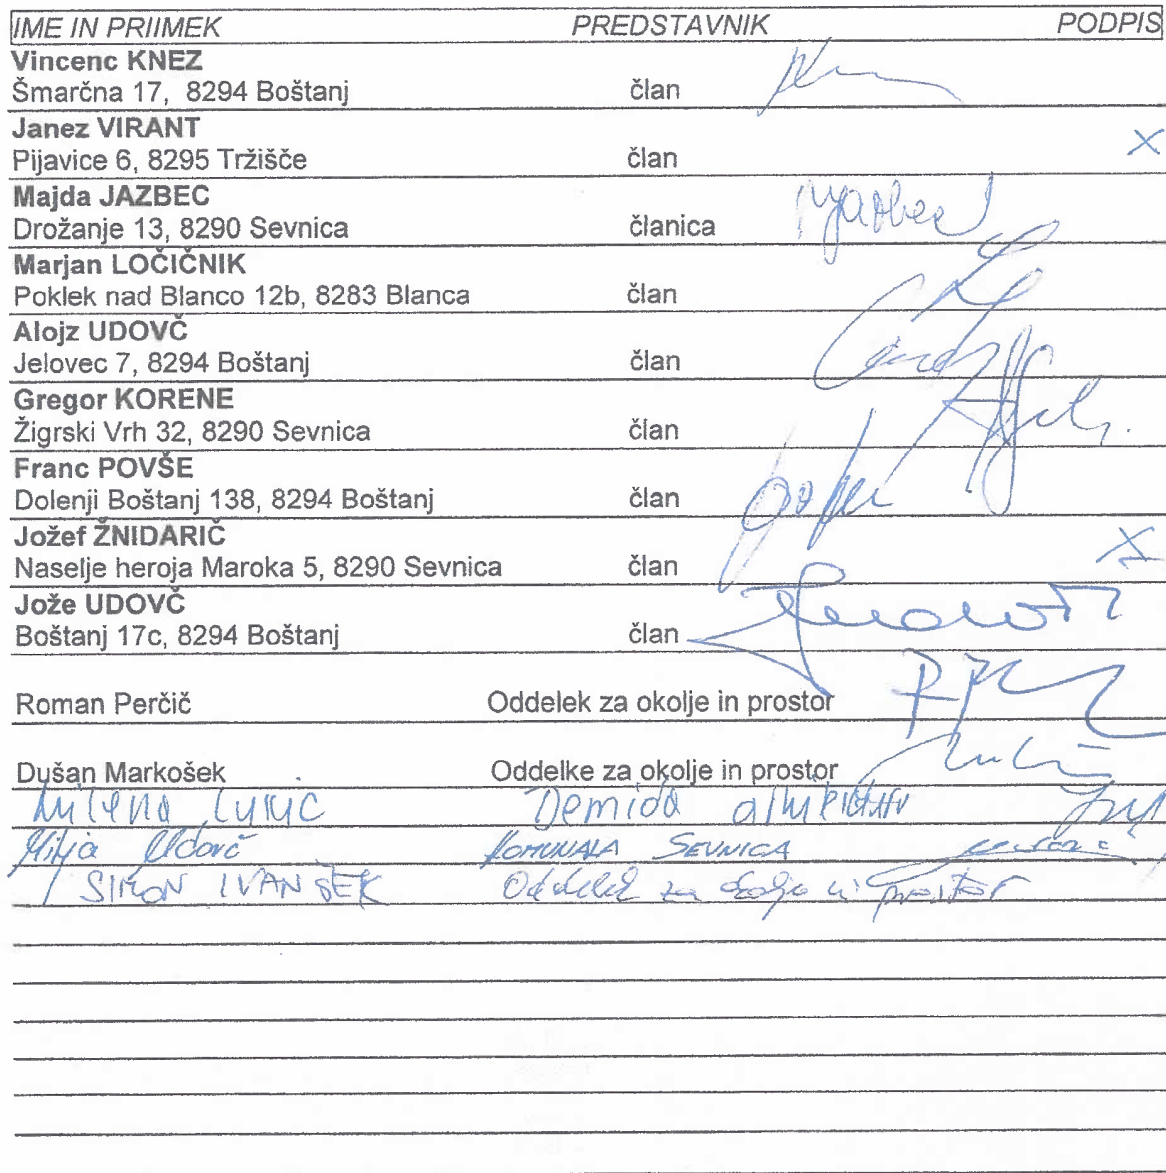 IME IN PRIIMEK PREDSTAVNIK PODPIS
Vincenc KNEZ
Šmarčna 17, 8294 Boštanj član
Janez VIRANT
Pijavice 6, 8295 Tržišče član X
Majda JAZBEC
Drožanje 13, 8290 Sevnica članica
Marjan LOČIČNIK
Poklek nad Blanco 12b, 8283 Blanca član
Alojz UDOVČ
Jelovec 7, 8294 Boštanj član
Gregor KORENE
Žigrski Vrh 32, 8290 Sevnica član
Franc POVŠE
Dolenji Boštanj 138, 8294 Boštanj član
Jožef ŽNIDARIČ
Naselje heroja Maroka 5, 8290 Sevnica član X
Jože UDOVČ
Boštanj 17c, 8294 Boštanj član
Roman Perčič Oddelek za okolje in prostor
Dušan Markošek Oddelke za okolje in prostor
Milena
Mitja Udovč KOMUNALA SEVNICA
SIMON IVANŠEK Oddelek za okolje in prostor